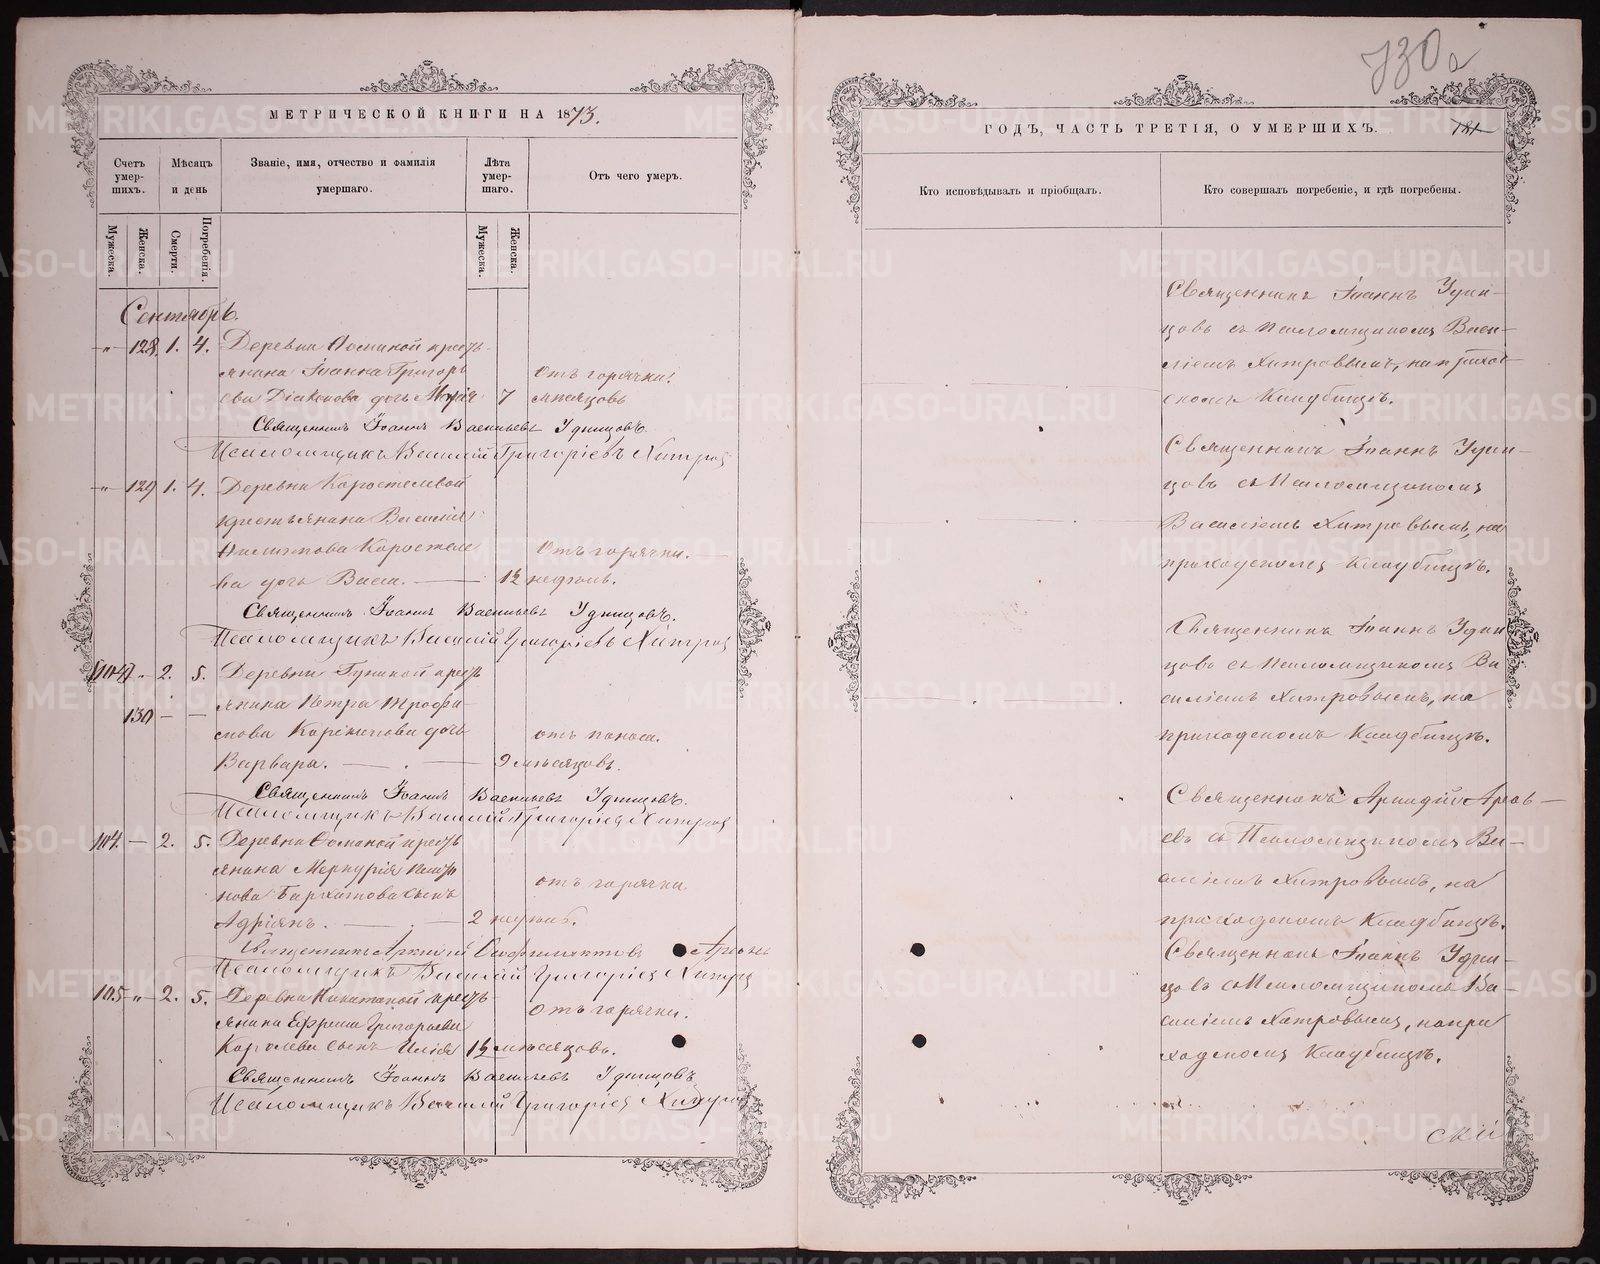 МЕТРИЧЕСКОЙ КНИГИ НА 1873.
Счетъ умер-шихъ.
Мѣсяцъ и день
Званіе, имя, отчество и фамилія умершаго.
Лѣта умер-шаго.
Отъ чего умеръ.
Мужеска.
Женска.
Смерти.
Погребенія.
Мужеска.
Женска.
Сентябрь.
-"- 128. 1. 4. Деревни кресть-
янина Іоанна Григорь
ева Діаконова дочь Марія 7 мѣсяцовъ
отъ горячки.
Священникъ Іоаннъ Васильевъ Удинцовъ.
Псаломщикъ Василій Григоріевъ Хитров
-"- 129 1. 4. Деревни Коростелевой
крестьянина Василія
Филиппова Коростеле
ва дочь Васса. — 1½ недѣль.
отъ горячки.
Священникъ Іоаннъ Васильевъ Удинцовъ.
Псаломщикъ Василій Григоріевъ Хитров
2. 5. Деревни кресть
130 — — янина Петра Трофи-
мова дочь
отъ поноса.
Варвара. — 9 мѣсяцовъ.
Священникъ Іоаннъ Васильевъ Удинцовъ.
Псаломщикъ Василій Григоріевъ Хитров
104. — 2. 5. Деревни кресть
янина Меркурія
нова Бархатова сынъ
отъ горячки
Адріанъ. — 2 недѣль.
Священникъ Аркадій
Псаломщикъ Василій Григоріевъ Хитров
105 " 2. 5. Деревни Никитиной кресть-
янина Ефрема Григорьева
отъ горячки.
Королева сынъ Илія 1½ мѣсяцовъ.
Священникъ Іоаннъ Васильевъ Удинцовъ
Псаломщикъ Василій Григоріевъ Хитров
730
181
ГОДЪ, ЧАСТЬ ТРЕТІЯ, О УМЕРШИХЪ.
Кто исповѣдывалъ и пріобщалъ.
Кто совершалъ погребеніе, и гдѣ погребены.
Священникъ Іоаннъ Удин-
цовъ съ Псаломщикомъ Васи-
ліемъ Хитровымъ, на приход-
скомъ Кладбищѣ.
Священникъ Іоаннъ Удин-
цовъ съ Псаломщикомъ
Василіемъ Хитровымъ, на
приходскомъ Кладбищѣ.
Священникъ Іоаннъ Удин
цовъ съ Псаломщикомъ Ва
силіемъ Хитровымъ, на
приходскомъ Кладбищѣ.
Священникъ Аркадій
евъ съ Псаломщикомъ Ва-
силіемъ Хитровымъ, на
приходскомъ Кладбищѣ.
Священникъ Іоаннъ Удин-
цовъ съ Псаломщикомъ Ва-
силіемъ Хитровымъ, на при
ходскомъ Кладбищѣ.
скій
METRIKI.GASO-URAL.RU